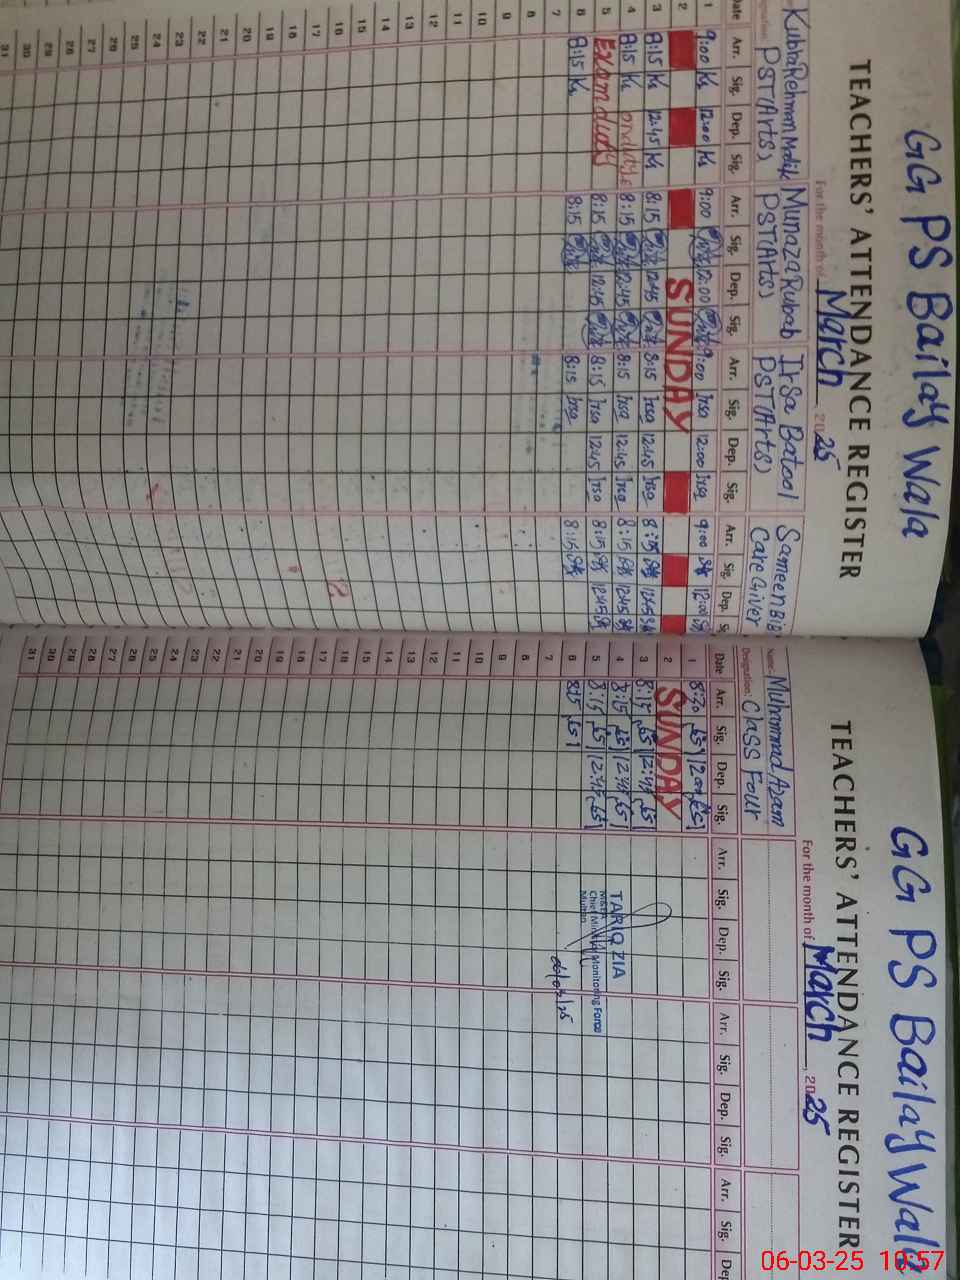 GG PS Bailay Wala
TEACHERS' ATTENDANCE REGISTER
For the month of March, 2025
Kubra Rehman Malik Munaza Rubab Irsa Batool Sameen Bibi
PST(Arts) PST(Arts) PST(Arts) Care Giver
Date Arr. Sig. Dep. Sig. Arr. Sig. Dep. Sig. Arr. Sig. Dep. Sig. Arr. Sig. Dep.
1 9:00 Ks 12:00 Ks 9:00 12:00 9:00 Irsa 12:00 Irsa 9:00 12:00
2 SUNDAY
3 8:15 Ks 12:45 Ks 8:15 12:45 8:15 Irsa 12:45 Irsa 8:15 12:45
4 8:15 Ks on duty 8:15 12:45 8:15 Irsa 12:45 Irsa 8:15 12:45
5 Exam duty 8:15 12:45 8:15 Irsa 12:45 Irsa 8:15 12:45
6 8:15 Ks 8:15 8:15 Irsa 8:15
7
8
9
10
11
12
13
14
15
16
17
18
19
20
21
22
23
24
25
26
27
28
29
30
31
GG PS Bailay Wala
TEACHERS' ATTENDANCE REGISTER
For the month of March, 2025
Name: Muhammad Azam
Designation: Class Four
Date Arr. Sig. Dep. Sig. Arr. Sig. Dep. Sig. Arr. Sig. Dep. Sig. Arr. Sig. Dep.
1 8:20 12:00
2 SUNDAY
3 8:15 12:45
4 8:15 12:45
5 8:15 12:45
6 8:15
7
8
9
10
11
12
13
14
15
16
17
18
19
20
21
22
23
24
25
26
27
28
29
30
31
TARIQ ZIA
M&EA
Chief Minister Monitoring Force
Multan
06/03/25
06-03-25 10:57